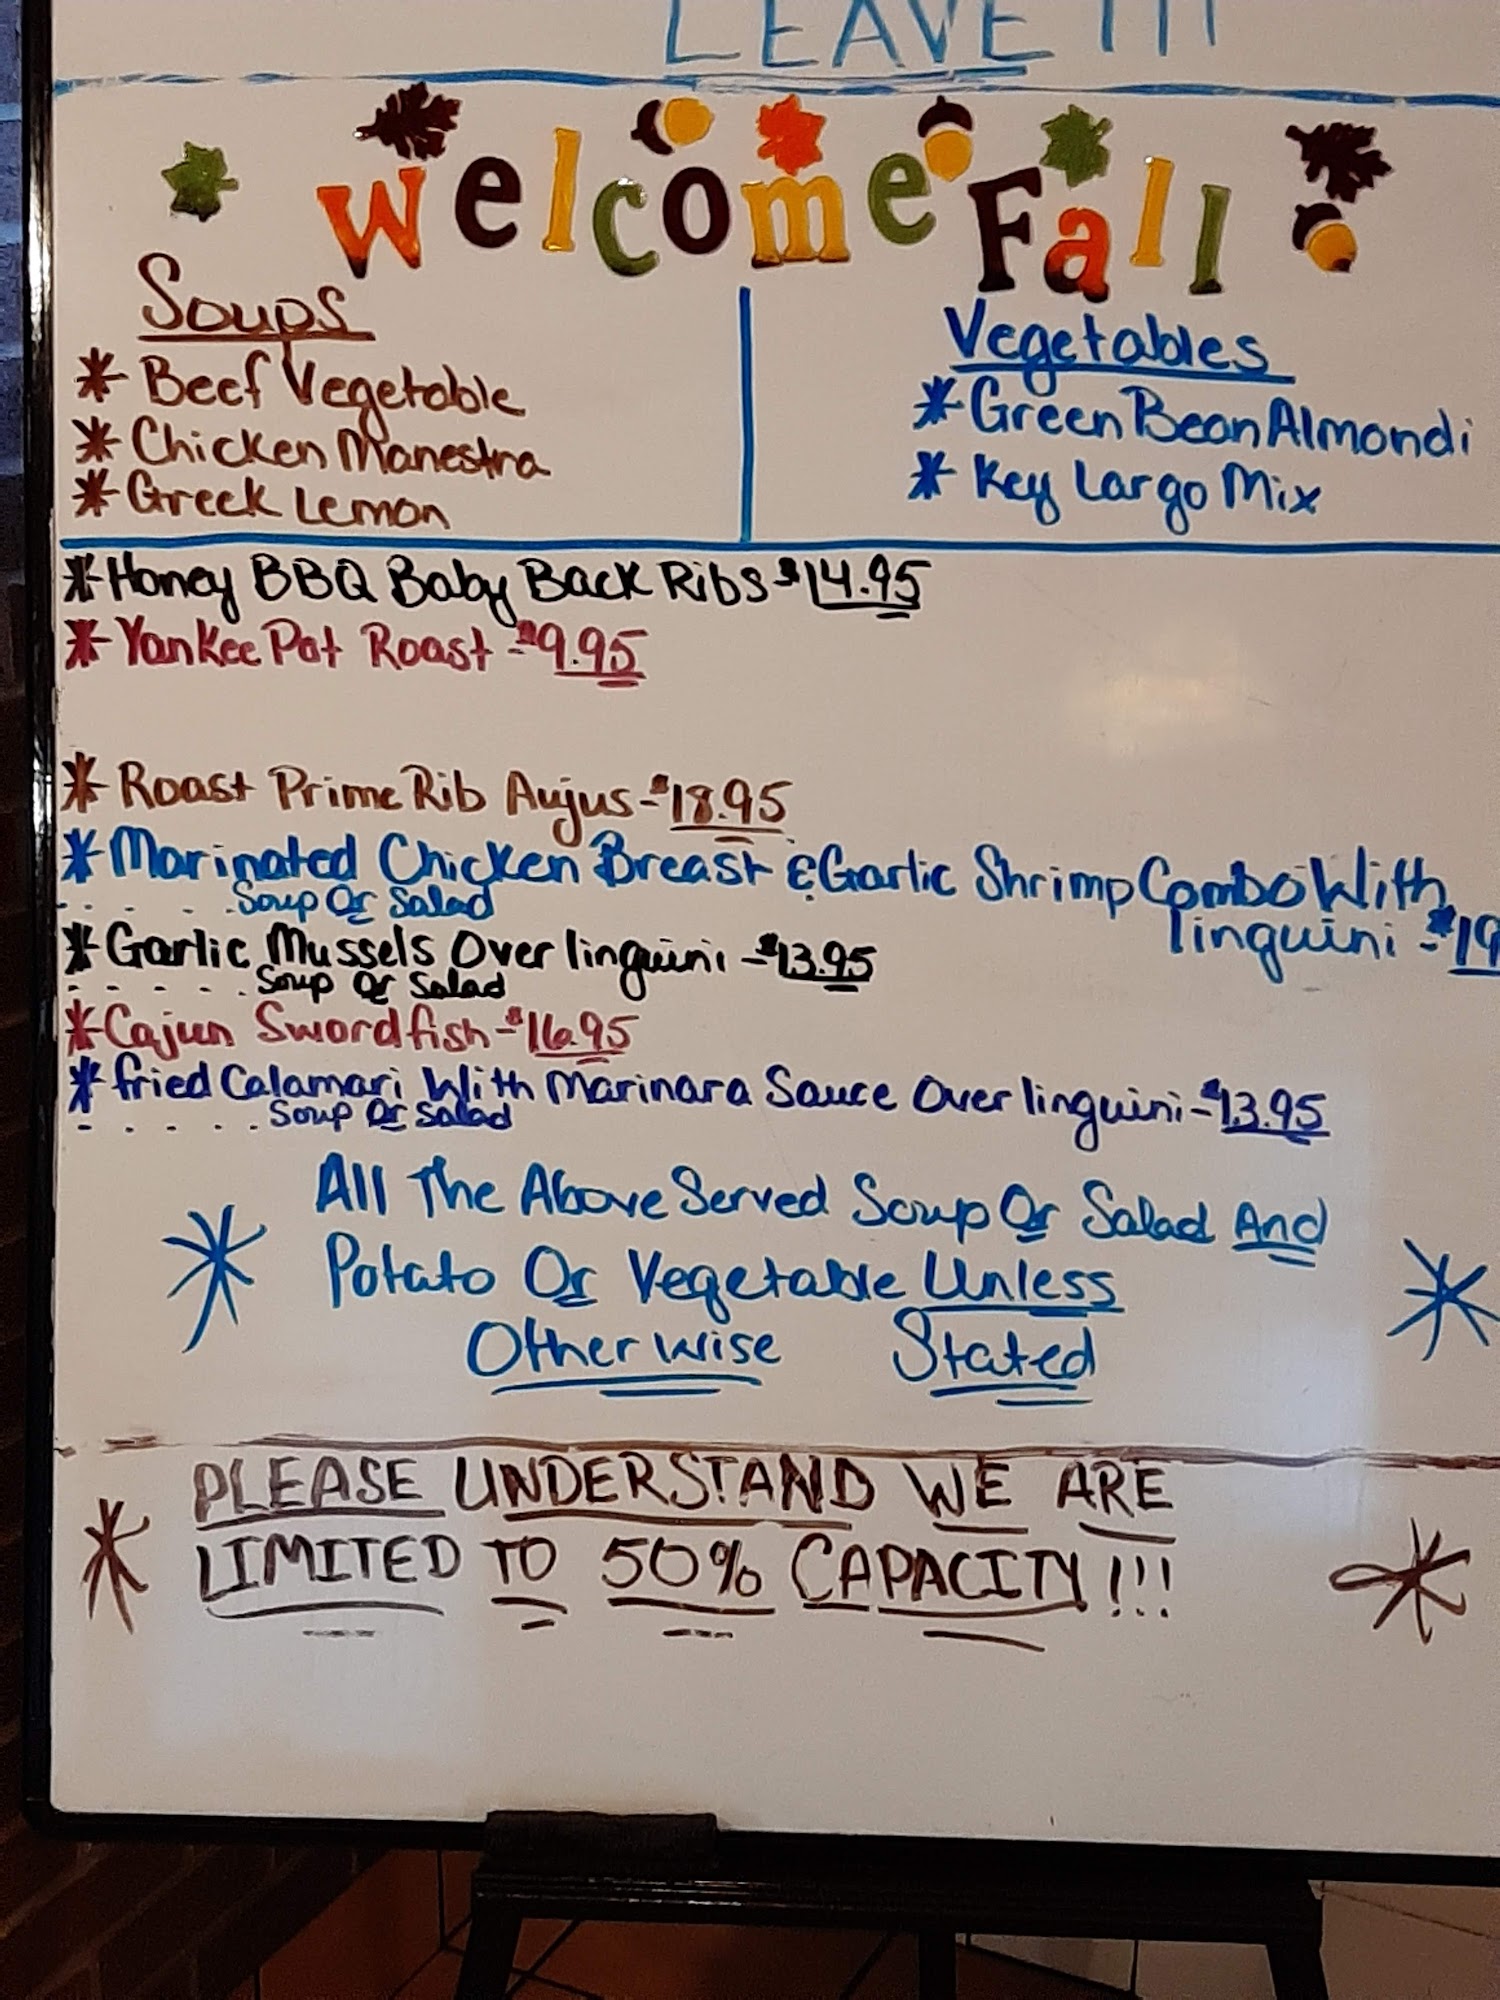 LEAVE IT!
Welcome Fall
Soups
* Beef Vegetable
* Chicken Manestra
* Greek Lemon
Vegetables
* Green Bean Almondi
* Key Largo Mix
* Honey BBQ Baby Back Ribs - $14.95
* Yankee Pot Roast - $9.95
* Roast Prime Rib Aujus - $18.95
* Marinated Chicken Breast & Garlic Shrimp Combo With
Soup Or Salad
linguini - $19
* Garlic Mussels Over linguini - $13.95
Soup Or Salad
* Cajun Swordfish - $16.95
* fried Calamari With Marinara Sauce Over linguini - $13.95
Soup Or Salad
All The Above Served Soup Or Salad And
Potato Or Vegetable Unless
Otherwise Stated
PLEASE UNDERSTAND WE ARE
LIMITED TO 50% CAPACITY!!!